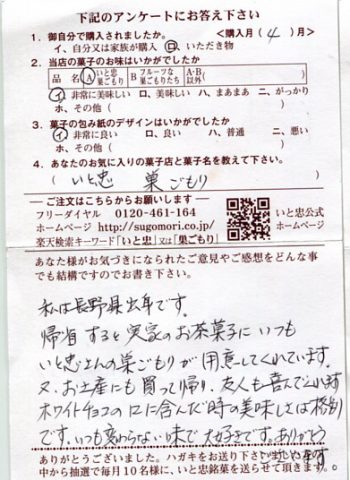 下記のアンケートにお答え下さい
1. 御自分で購入されましたか。 <購入月( 4 )月>
イ、自分又は家族が購入 ロ、いただき物
2. 当店の菓子のお味はいかがでしたか
品 名 A いと忠巣ごもり B フルーツな巣ごもりたち A・B以外( )
イ、非常に美味しい ロ、美味しい ハ、まあまあ ニ、がっかり
ホ、その他( )
3. 菓子の包み紙のデザインはいかがでしたか
イ、非常に良い ロ、良い ハ、普通 ニ、悪い
ホ、その他( )
4. あなたのお気に入りの菓子店と菓子名を教えて下さい。
( いと忠 巣ごもり )
― ご注文はこちらからお願いします ―
フリーダイヤル 0120-461-164
ホームページ http://sugomori.co.jp/
楽天検索キーワード「いと忠」又は「巣ごもり」
いと忠公式
ホームページ
あなた様がお気づきになられたご意見やご感想をどんな事
でも結構ですのでお書き下さい。
私は長野県出身です。
帰省すると実家のお茶菓子にいつも
いと忠さんの巣ごもりが用意してくれています。
又、お土産にも買って帰り、友人も喜んでいます
ホワイトチョコの口に含んだ時の美味しさは格別
です。いつも変わらない味で大好きです。ありがとう
ございます
ありがとうございました。ハガキをお送り下さいました方の
中から抽選で毎月10名様に、いと忠銘菓を送らせて頂きます。